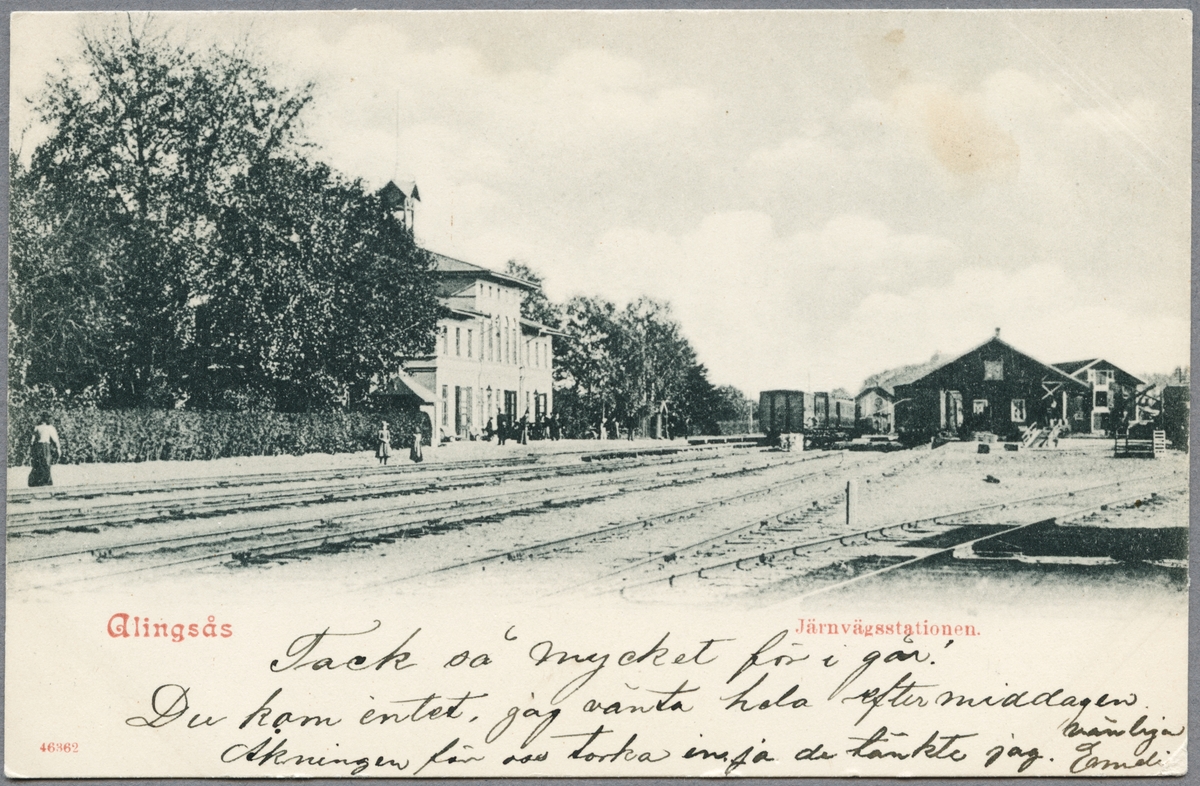 Alingsås
Järnvägsstationen.
Tack så mycket för i går!
Du kom entet, jag vänta hela eftermiddagen
Åkningen för oss torka de tänkte jag.
vänliga
46362